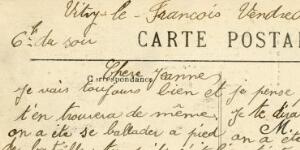 Vitry-le-François Vendredi
6h du soir
CARTE POSTA
Correspondance
Chère Jeanne
Je vais toujours bien et je pense
t'en trouvera de même.
on a été se ballader à pied
Je te dirai
on a été